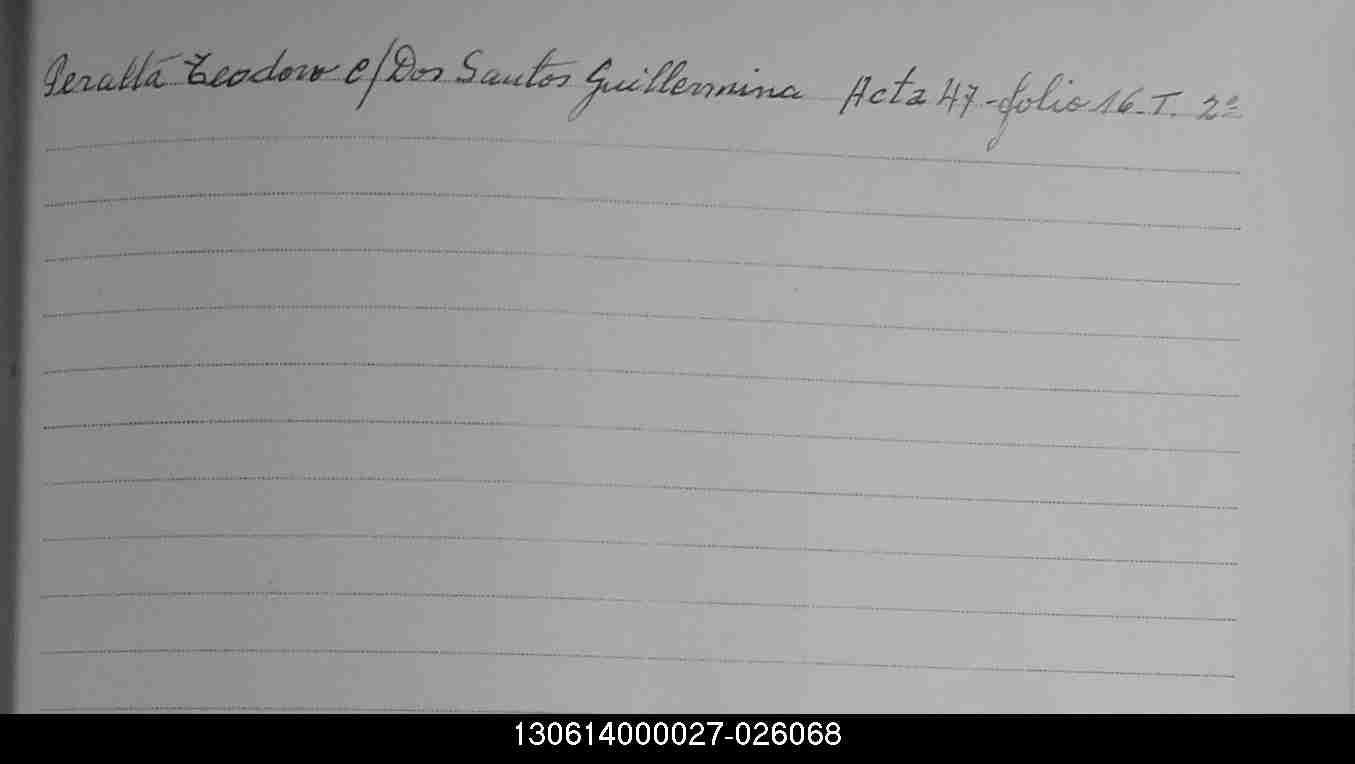 Peralta Teodoro c/Dos Santos Guillermina Acta 47-folio 16-T. 2º
130614000027-026068